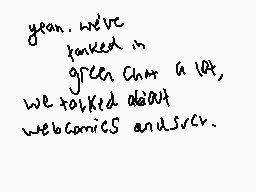 yeah. we've
talked in
green chat a lot,
we talked about
webcomics and such.